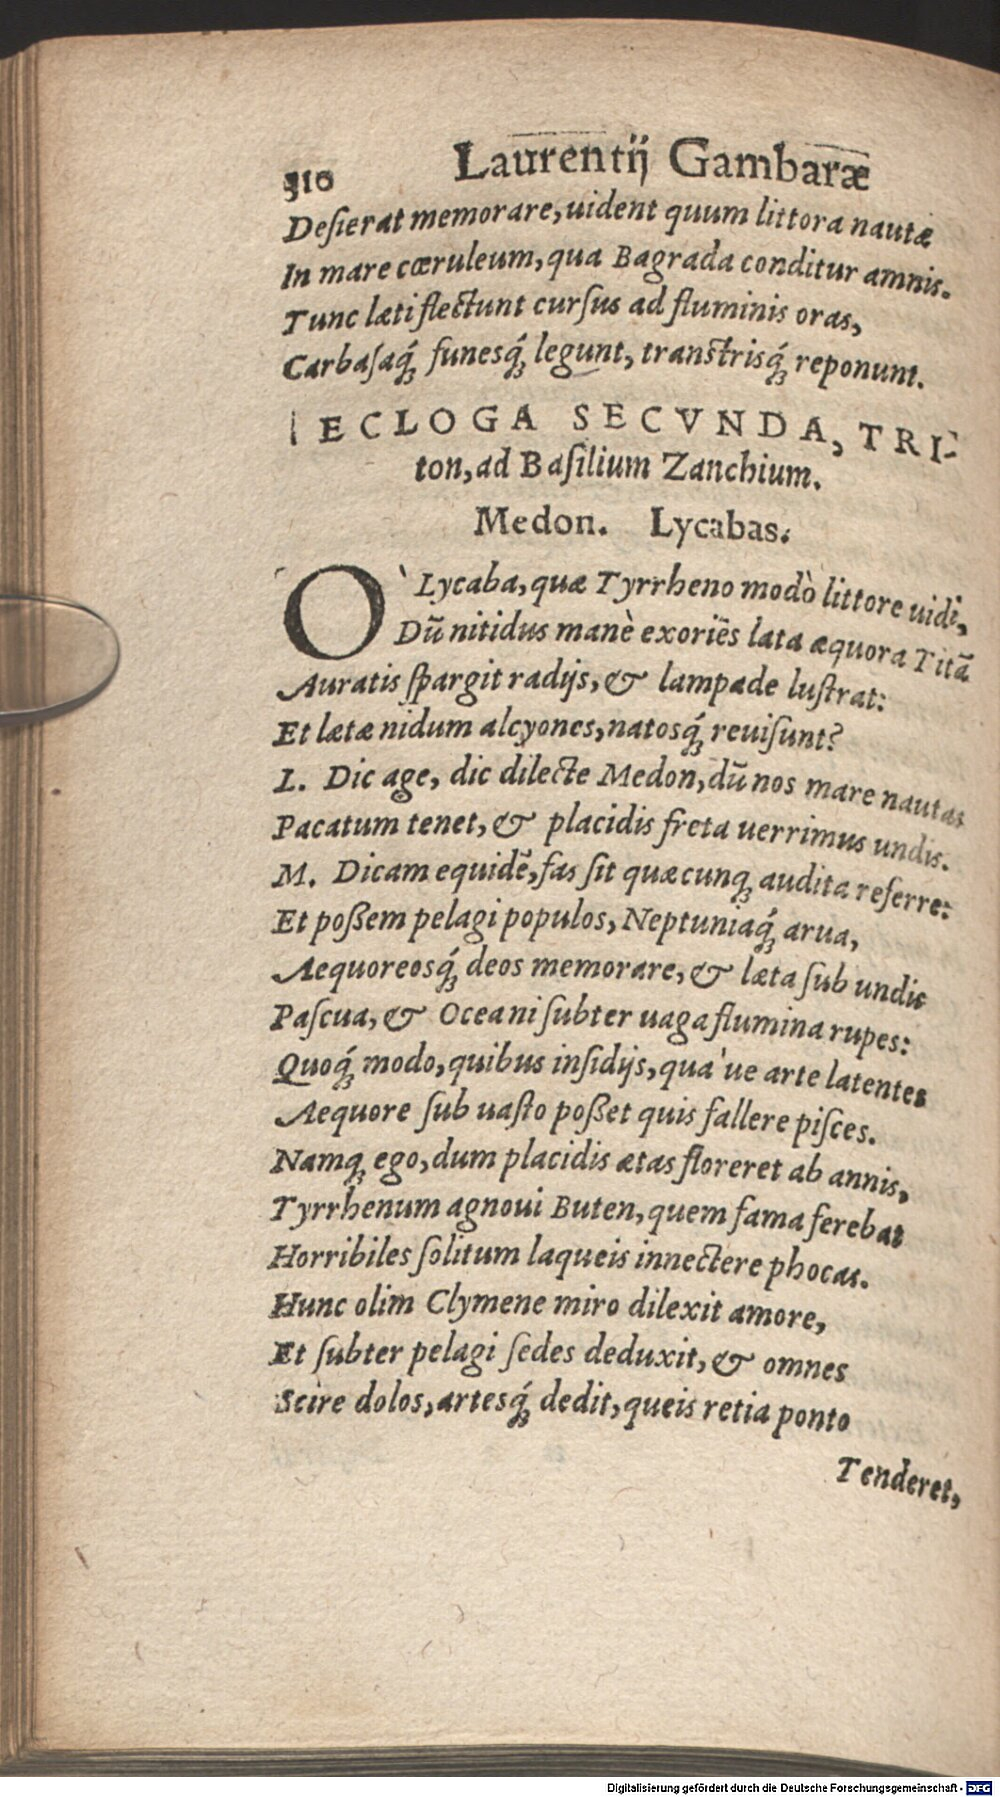 310 Laurentij Gambaræ
Deſierat memorare, uident quum littora nautæ
In mare cœruleum, qua Bagrada conditur amnis.
Tunc læti flectunt curſus ad fluminis oras,
Carbaſaq́; funesq́; legunt, transtrisq́; reponunt.
ECLOGA SECVNDA, TRI-
ton, ad Baſilium Zanchium.
Medon. Lycabas.
O` Lycaba, quæ Tyrrheno modò littore uidi,
Dū nitidus manè exoriēs lata æquora Titā
Auratis ſpargit radijs, & lampade luſtrat:
Et lætæ nidum alcyones, natosq́; reuiſunt?
L. Dic age, dic dilecte Medon, dū nos mare nautas
Pacatum tenet, & placidis freta uerrimus undis.
M. Dicam equidē, fas ſit quæcunq; audita referre:
Et poßem pelagi populos, Neptuniaq́; arua,
Aequoreosq́; deos memorare, & læta ſub undis
Paſcua, & Oceani ſubter uaga flumina rupes:
Quoq́; modo, quibus inſidijs, qua'ue arte latentes
Aequore ſub uaſto poßet quis fallere piſces.
Namq; ego, dum placidis ætas floreret ab annis,
Tyrrhenum agnoui Buten, quem fama ferebat
Horribiles ſolitum laqueis innectere phocas.
Hunc olim Clymene miro dilexit amore,
Et ſubter pelagi ſedes deduxit, & omnes
Scire dolos, artesq́; dedit, queis retia ponto
Tenderet,
Digitalisierung gefördert durch die Deutsche Forschungsgemeinschaft - DFG